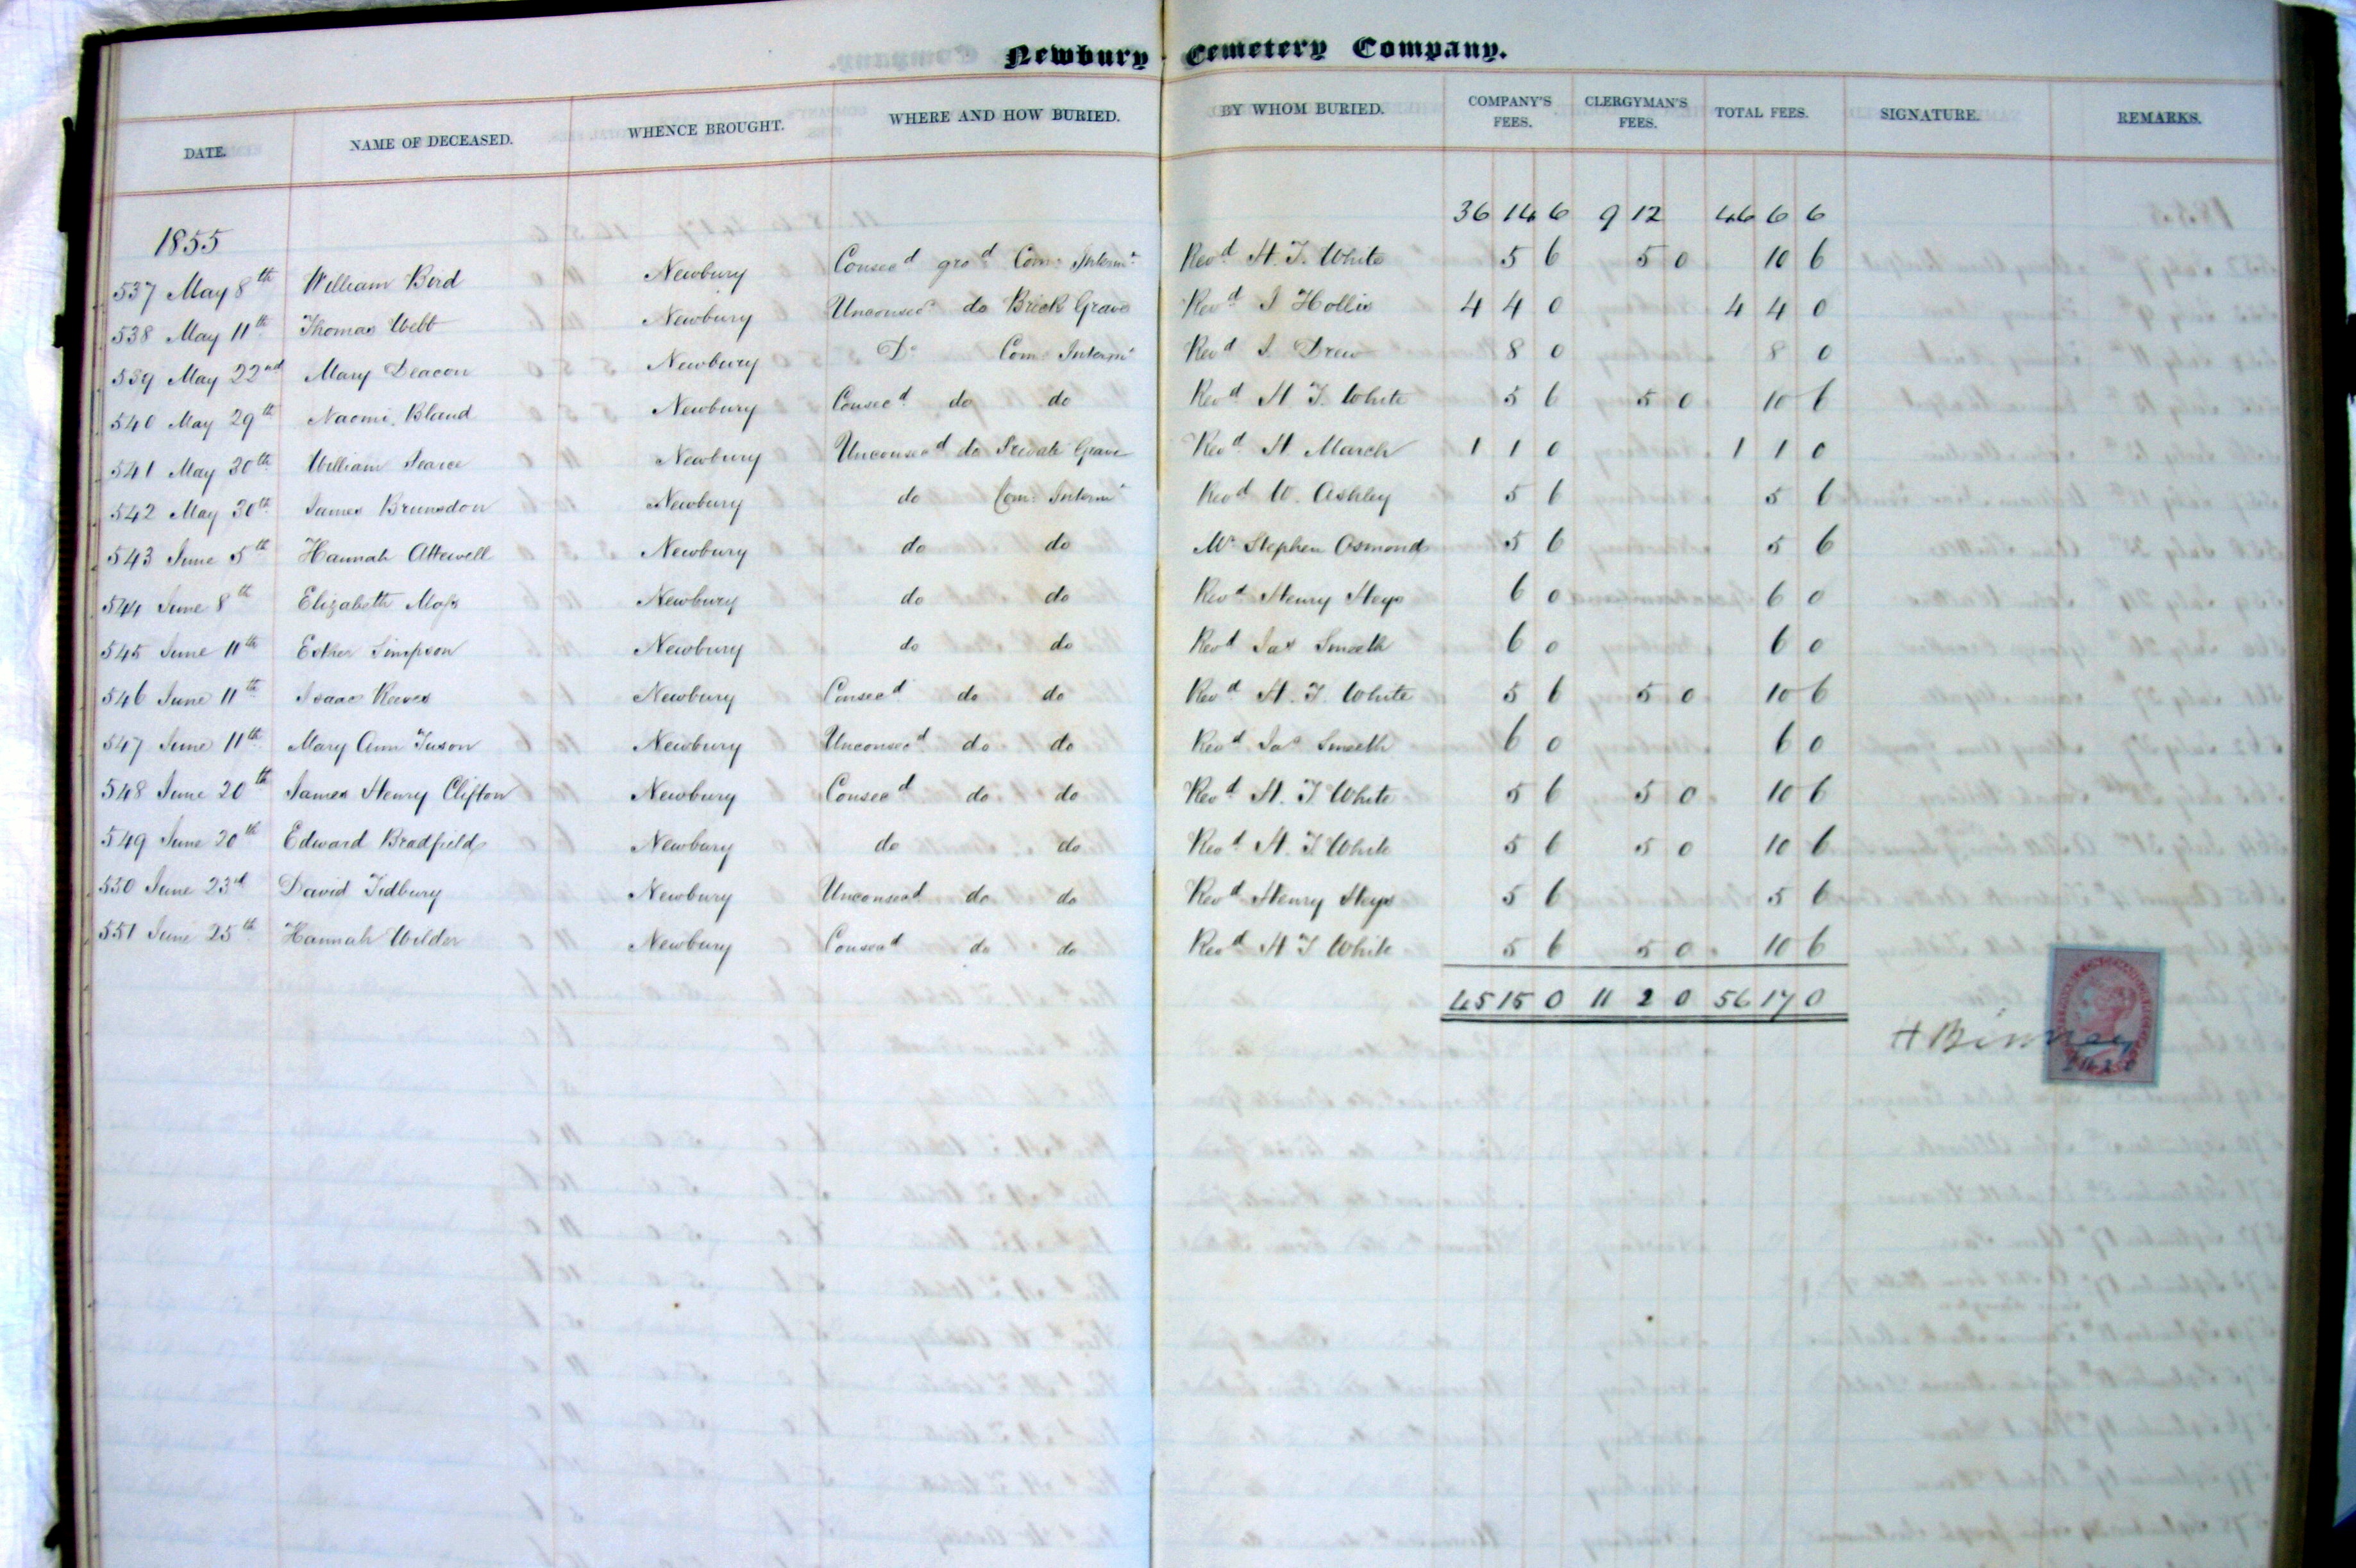 Newbury Cemetery Company.
DATE. NAME OF DECEASED. WHENCE BROUGHT. WHERE AND HOW BURIED. BY WHOM BURIED. COMPANY'S FEES. CLERGYMAN'S FEES. TOTAL FEES. SIGNATURE. REMARKS.
36 14 6 9 12 46 6 6
1855
537 May 8th William Bird Newbury Consecd grod Com: Intermt Revd H. T. White 5 6 5 0 10 6
538 May 11th Thomas Webb Newbury Unconsecd do Brick Grave Revd J Hollis 4 4 0 4 4 0
539 May 22nd Mary Deacon Newbury Do Com: Intermt Revd J. Drew 8 0 8 0
540 May 29th Naomi Bland Newbury Consecd do do Revd H. T. White 5 6 5 0 10 6
541 May 30th William Pearce Newbury Unconsecd do Private Grave Revd H. March 1 1 0 1 1 0
542 May 30th James Brunsdon Newbury do Com: Intermt Revd W. Ashley 5 6 5 6
543 June 5th Hannah Attewell Newbury do do Mr Stephen Osmond 5 6 5 6
544 June 8th Elizabeth Moss Newbury do do Revd Henry Heys 6 0 6 0
545 June 11th Esther Simpson Newbury do do Revd Jas Smeeth 6 0 6 0
546 June 11th Isaac Reeves Newbury Consecd do do Revd H. T. White 5 6 5 0 10 6
547 June 11th Mary Ann Tuson Newbury Unconsecd do do Revd Jas Smeeth 6 0 6 0
548 June 20th James Henry Clifton Newbury Consecd do do Revd H. T. White 5 6 5 0 10 6
549 June 20th Edward Bradfield Newbury do do Revd H. T. White 5 6 5 0 10 6
550 June 23d David Tidbury Newbury Unconsecd do do Revd Henry Heys 5 6 5 6
551 June 25th Hannah Wilder Newbury Consecd do do Revd H T White 5 6 5 0 10 6
45 15 0 11 2 0 56 17 0